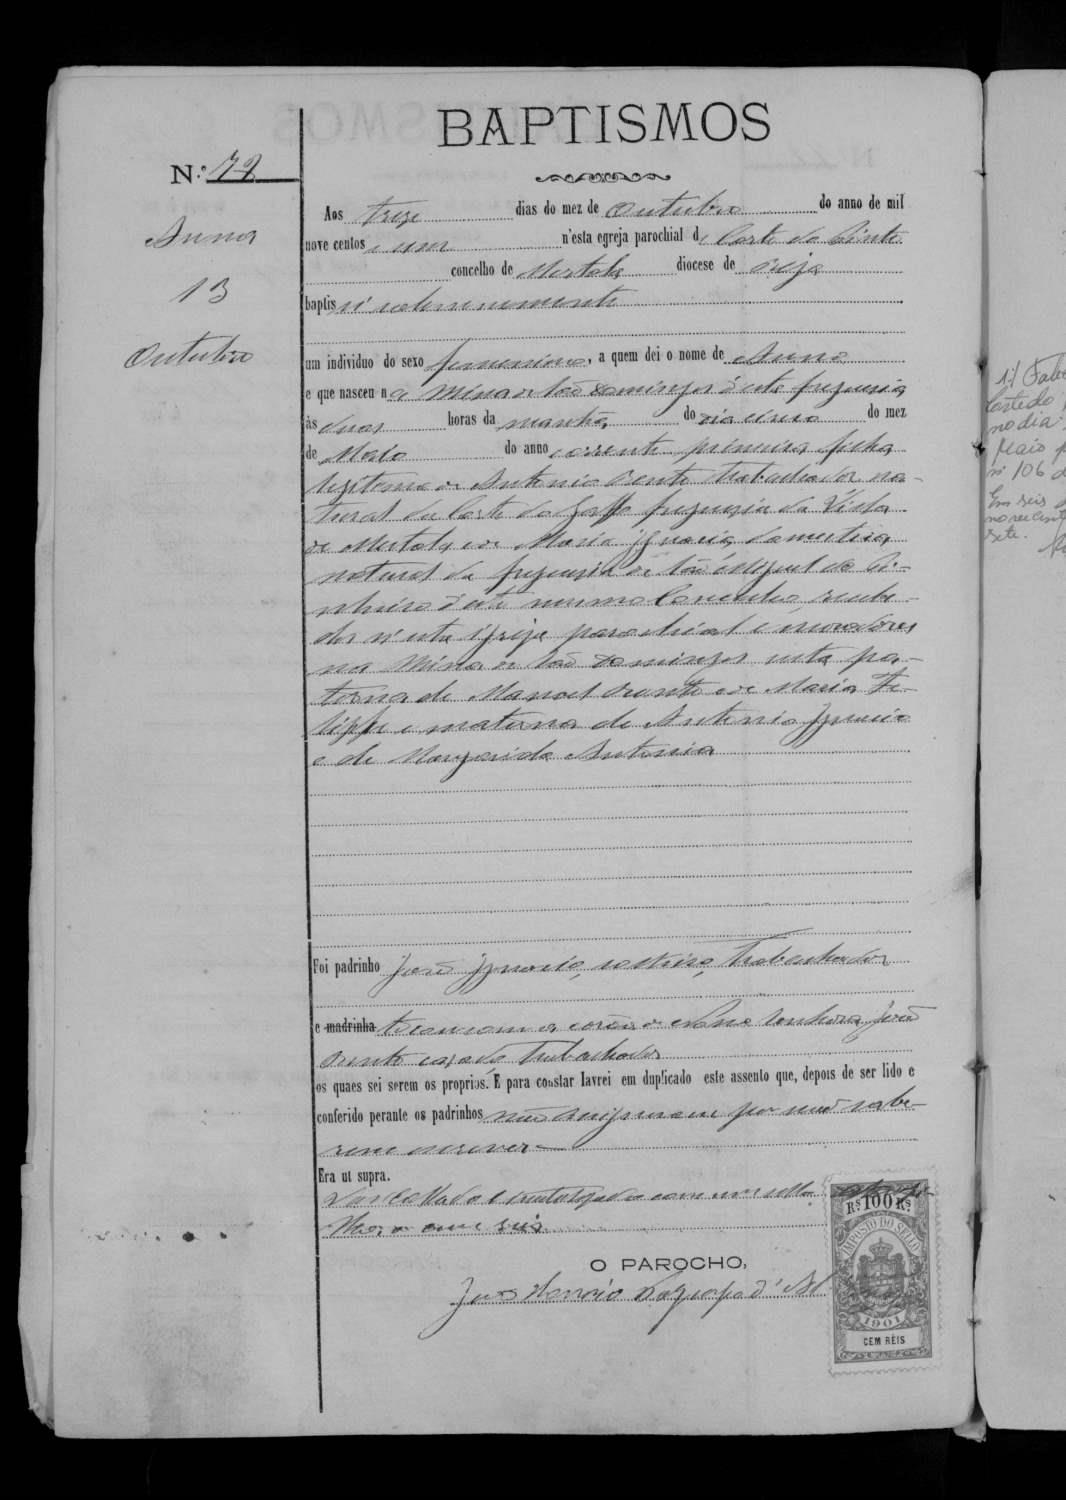 BAPTISMOS
N.º 72
Anna
13
Outubro
Aos treze dias do mez de Outubro do anno de mil
nove centos e um n'esta egreja parochial de Corte do Pinto
concelho de Mertola diocese de Beja
baptisei solemnemente
um individuo do sexo femenino, a quem dei o nome de Anna
e que nasceu na Mina de São Domingos d'esta freguesia
ás duas horas da manhã do dia cinco do mez
de Maio do anno corrente primeira filha
legitima de Antonio Bento trabalhador na-
tural da Corte do Gaffo freguesia da Villa
de Mertola e de Maria Ignacia domestica
natural da freguesia de São Miguel do Pi-
nheiro d'este mesmo Concelho, recebi-
dos n'esta igreja parochial e moradores
na Mina de São Domingos neta pa-
terna de Manoel Bento e de Maria Fe-
lippe e materna de Antonio Ignacio
e de Margarida Antonia
Foi padrinho José Ignacio, solteiro, trabalhador
e madrinha tocou com a corôa de Nossa Senhora, José
Bento casado trabalhador
os quaes sei serem os proprios. E para constar lavrei em duplicado este assento que, depois de ser lido e
conferido perante os padrinhos não assignaram por não sabe-
rem escrever
Era ut supra.
Vai collado e inutilisado com um sello
O PAROCHO,
Rs 100 Rs
IMPOSTO DO SELLO
1901
CEM RÉIS
1.º) Fale
Corte do
no dia
Maio
nº 106
Em seis
novecent
sete.